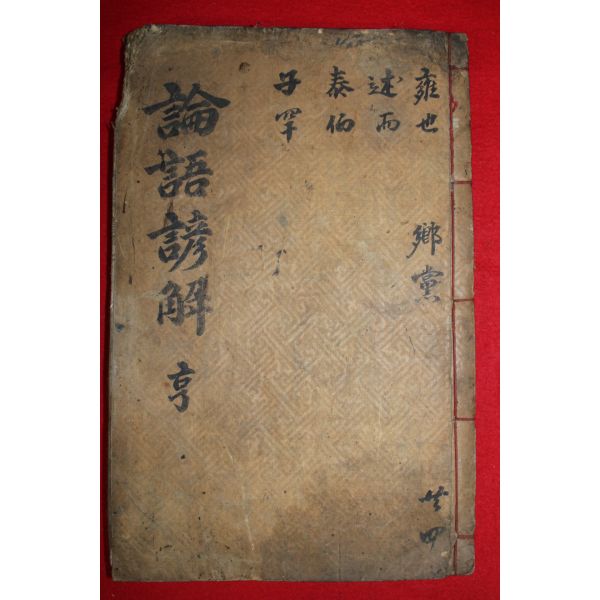 雍也 鄕黨 共四
述而
泰伯
子罕
論語諺解 亨